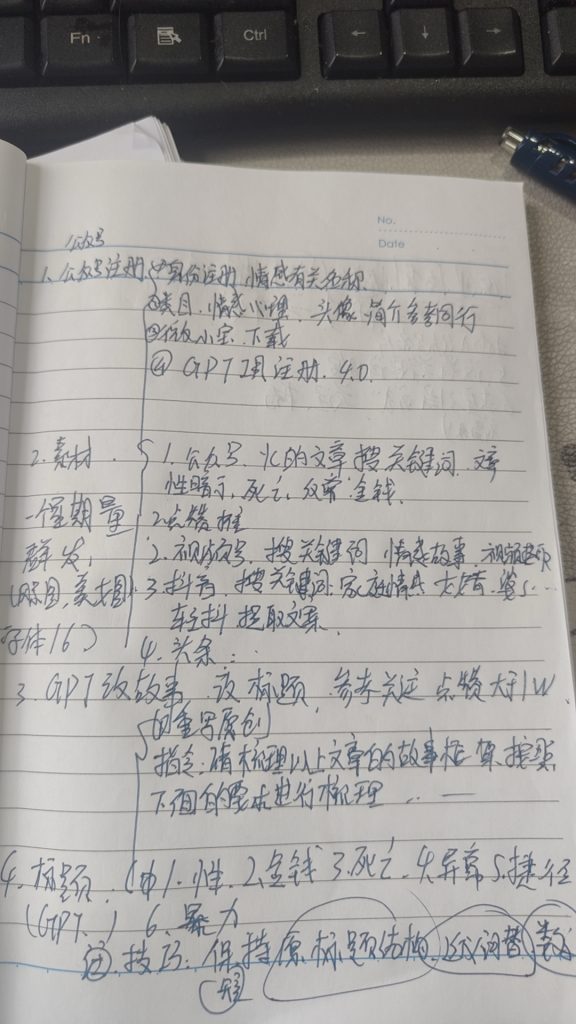 Fn
Ctrl
←
↓
→
No.
Date
公众号
1. 公众号注册 ①身份注册 情感有关名称
②类目, 情感心理, 头像 简介参考同行
下载
④ GPT 注册. 4.0.
2. 素材 1. 公众号. 的文章 搜关键词
性暗示, 死亡, 金钱.
一个星期量 2. 点赞 推
群发, 2. 视频号, 搜关键词 情感故事
3. 抖音, 搜关键词 家庭情感
字体16) 轻抖 提取文案
4. 头条...
3. GPT改故事 改标题, 参考关注 点赞大于1W
重写原创
指令: 请梳理以上文章的故事框架 按照
下面的要求进行梳理 ...
4. 标题. 1. 性. 2. 金钱 3. 死亡. 4. 异常 5. 捷径
(GPT.) 6. 暴力
技巧: 保持原标题结构